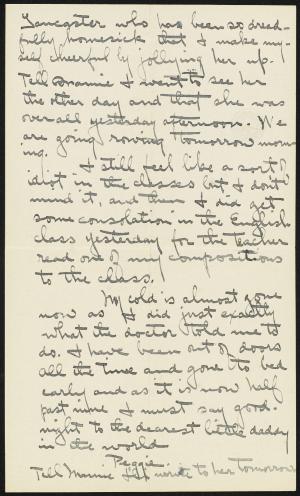 Lancaster who has been so dread-
fully homesick that I make my-
self cheerful by jollying her up.
Tell Mamie I went to see her
the other day and that she was
over all yesterday afternoon. We
are going rowing tomorrow morn
ing.
I still feel like a sort of
idiot in the classes but I don't
mind it, and then I did get
some consolation in the English
class yesterday for the teacher
read one of my compositions
to the class.
My cold is almost gone
now as I did just exactly
what the doctor told me to
do. I have been out of doors
all the time and gone to bed
early and as it is now half
past nine I must say good-
night to the dearest little daddy
in the world
Peggie.
Tell Mamie I'll write to her tomorrow